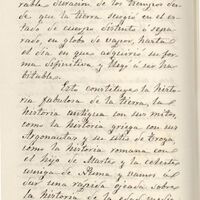 rable duracion de los tiempos des-
de que la tierra surgió en el es-
tado de cuerpo distinto ó sepa-
rado, en globo de vapor, hasta
el dia en que adquirió su for-
ma definitiva y llegó á ser ha-
bitable.
Esto constituye la histo-
ria fabulosa de la tierra, la
historia antigua con sus mitos,
como la historia griega con sus
Argonautas y su sitio de Troya,
como la historia romana con
el hijo de Marte y la celeste
amiga de Numa y vamos á
dar una rapida ojeada sobre
la historia de la edad media